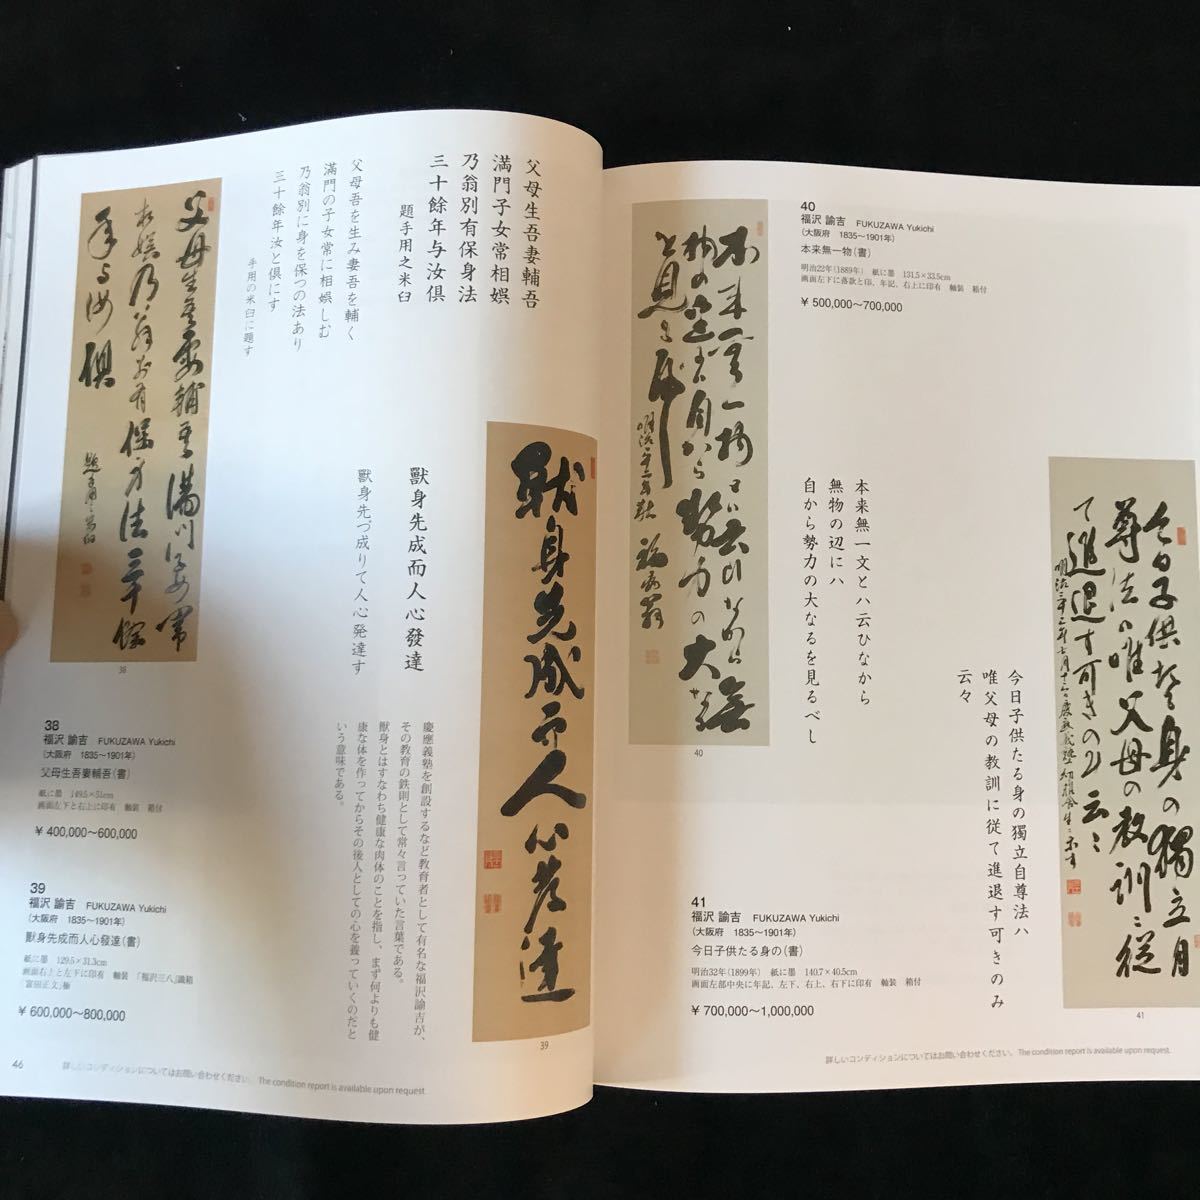 父母生吾妻輔吾
満門子女常相娯
乃翁別有保身法
三十餘年与汝倶
題手用之米臼
父母吾を生み妻吾を輔く
満門の子女常に相娯しむ
乃翁別に身を保つの法あり
三十餘年汝と倶にす
手用の米臼に題す
38
38
福沢 諭吉 FUKUZAWA Yukichi
(大阪府 1835〜1901年)
父母生吾妻輔吾(書)
紙に墨 149.5×51cm
画面左下と右上に印有 軸装 箱付
¥ 400,000〜600,000
獸身先成而人心發達
獸身先づ成りて人心発達す
慶應義塾を創設するなど教育者として有名な福沢諭吉が、
その教育の鉄則として常々言っていた言葉である。
獸身とはすなわち健康な肉体のことを指し、まず何よりも健
康な体を作ってからその後人としての心を養っていくのだと
いう意味である。
獣身先成而人心発達
39
39
福沢 諭吉 FUKUZAWA Yukichi
(大阪府 1835〜1901年)
獸身先成而人心發達(書)
紙に墨 129.5×31.3cm
画面右上と左下に印有 軸装 「福沢三八」識箱
「富田正文」極
¥ 600,000〜800,000
46
詳しいコンディションについてはお問い合わせください。 The condition report is available upon request.
40
福沢 諭吉 FUKUZAWA Yukichi
(大阪府 1835〜1901年)
本来無一物(書)
明治22年(1889年) 紙に墨 131.5×33.5cm
画面左下に落款と印、年記、右上に印有 軸装 箱付
¥ 500,000〜700,000
本来無一文とハ云ひなから
無物の辺にハ
自から勢力の大なるを見るべし
40
今日子供たる身の獨立自尊法ハ
唯父母の教訓に従て進退す可きのみ
云々
41
福沢 諭吉 FUKUZAWA Yukichi
(大阪府 1835〜1901年)
今日子供たる身の(書)
明治32年(1899年) 紙に墨 140.7×40.5cm
画面左部中央に年記、左下、右上、右下に印有 軸装 箱付
¥ 700,000〜1,000,000
41
詳しいコンディションについてはお問い合わせください。 The condition report is available upon request.